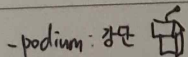 - podium : 강단